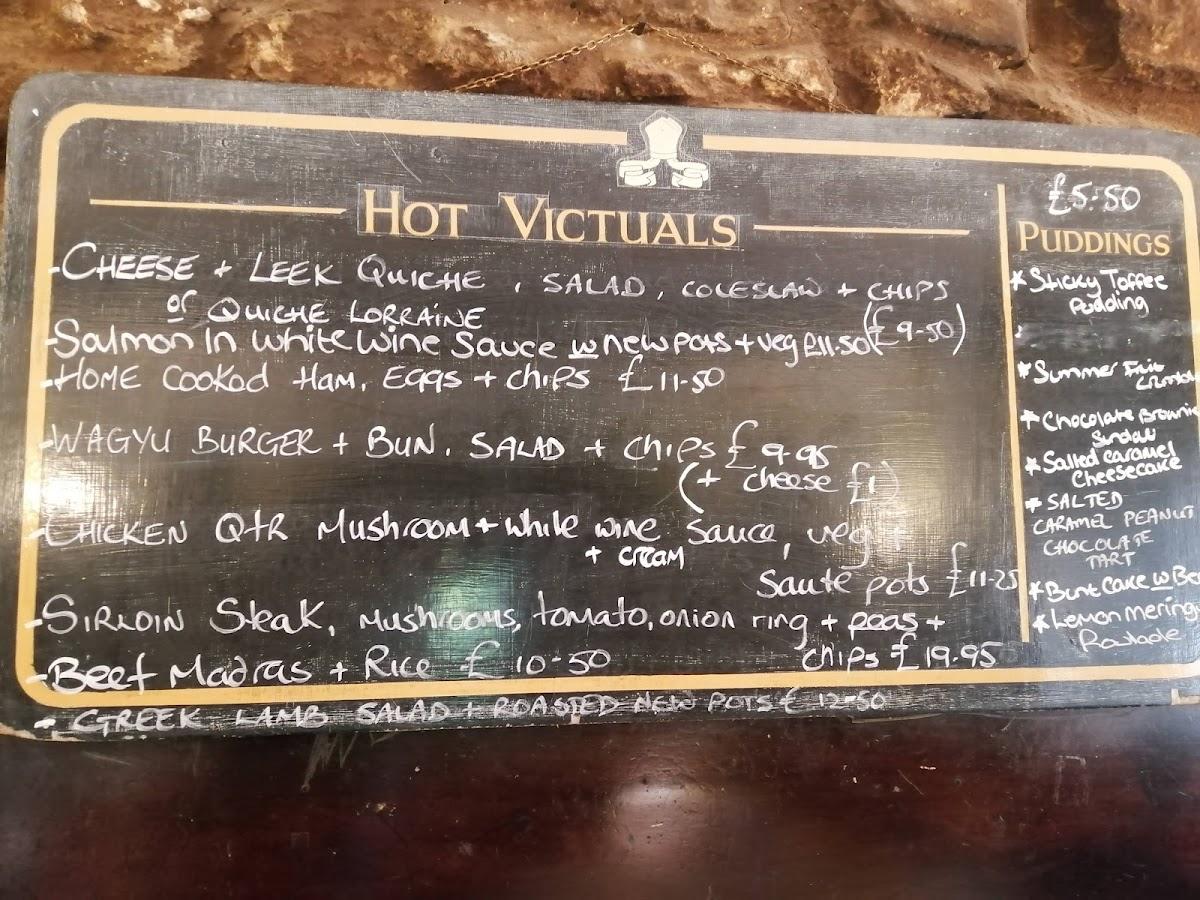 HOT VICTUALS
-CHEESE + LEEK QUICHE, SALAD, COLESLAW + CHIPS
or QUICHE LORRAINE (£9-50)
-Salmon in white wine sauce w new pots + veg £11.50
-HOME COOKED HAM, EGGS + CHIPS £11-50
-WAGYU BURGER + BUN, SALAD + CHIPS £9-95
(+ cheese £1)
-CHICKEN QTR Mushroom + white wine sauce, veg +
+ cream
Saute pots £11-25
-SIRLOIN Steak, Mushrooms, tomato, onion ring + peas +
chips £19.95
-Beef Madras + Rice £10-50
- GREEK LAMB SALAD + ROASTED NEW POTS £12-50
£5-50
PUDDINGS
* Sticky Toffee
Pudding
* Summer
* Chocolate Brownie
* Salted caramel
Cheesecake
* SALTED
CARAMEL PEANUT
CHOCOLATE
TART
Cake w
* Lemon Mering